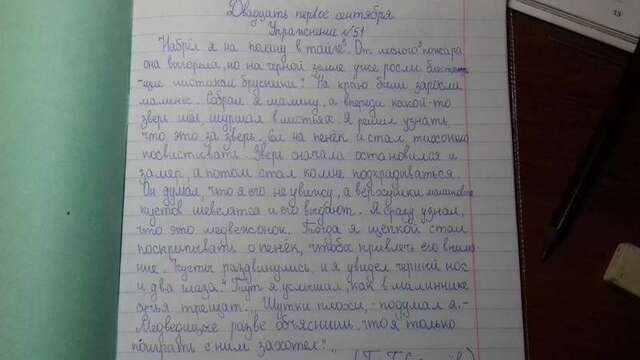 Двадцать первое сентября
Упражнение №51
Набрёл я на поляну в тайге. От лесного пожара
она выгорела, но на чёрной земле уже росли
листочки брусники. На краю были заросли
малины. Собрал я малину, а впереди какой-то
зверь шёл, шуршал в листьях. Я решил узнать,
что это за зверь. Сел на пенёк и стал тихонько
посвистывать. Зверь сначала остановился и
замер, а потом стал ко мне подкрадываться.
Он думал, что я его не увижу, а верхушки
кустов шевелятся и его выдают. Я сразу узнал,
что это медвежонок. Тогда я щепкой стал
поскрипывать о пенёк, чтобы привлечь его внима-
ние. Кусты раздвинулись, и я увидел чёрный нос
и два глаза. Тут я услышал, как в малиннике
сучья трещат. Шутки плохи, - подумал я. -
Медведице разве объяснишь, что я только
поиграть с ним захотел?"